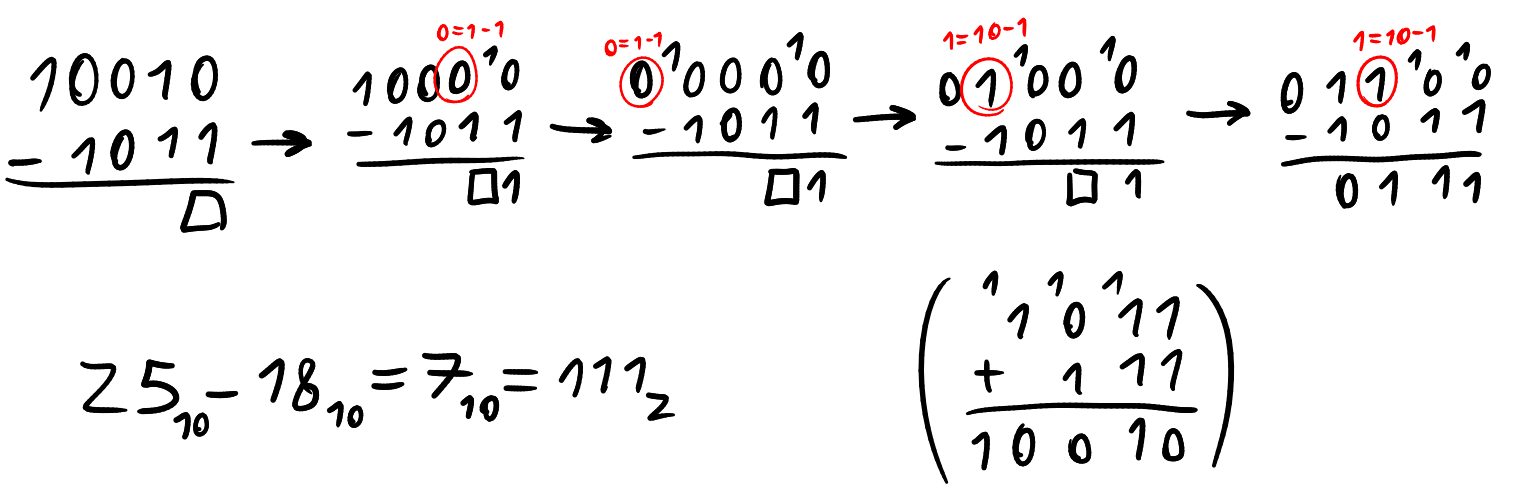 10010
- 1011
□
→
0=1-1
1000¹0
- 1011
□1
→
0=1-1
0¹000¹0
- 1011
□1
→
1=10-1
01¹00¹0
- 1011
□1
→
1=10-1
011¹0¹0
- 1011
0111
25₁₀ - 18₁₀ = 7₁₀ = 111₂
( 1 1 1
1011
+ 111
10010 )